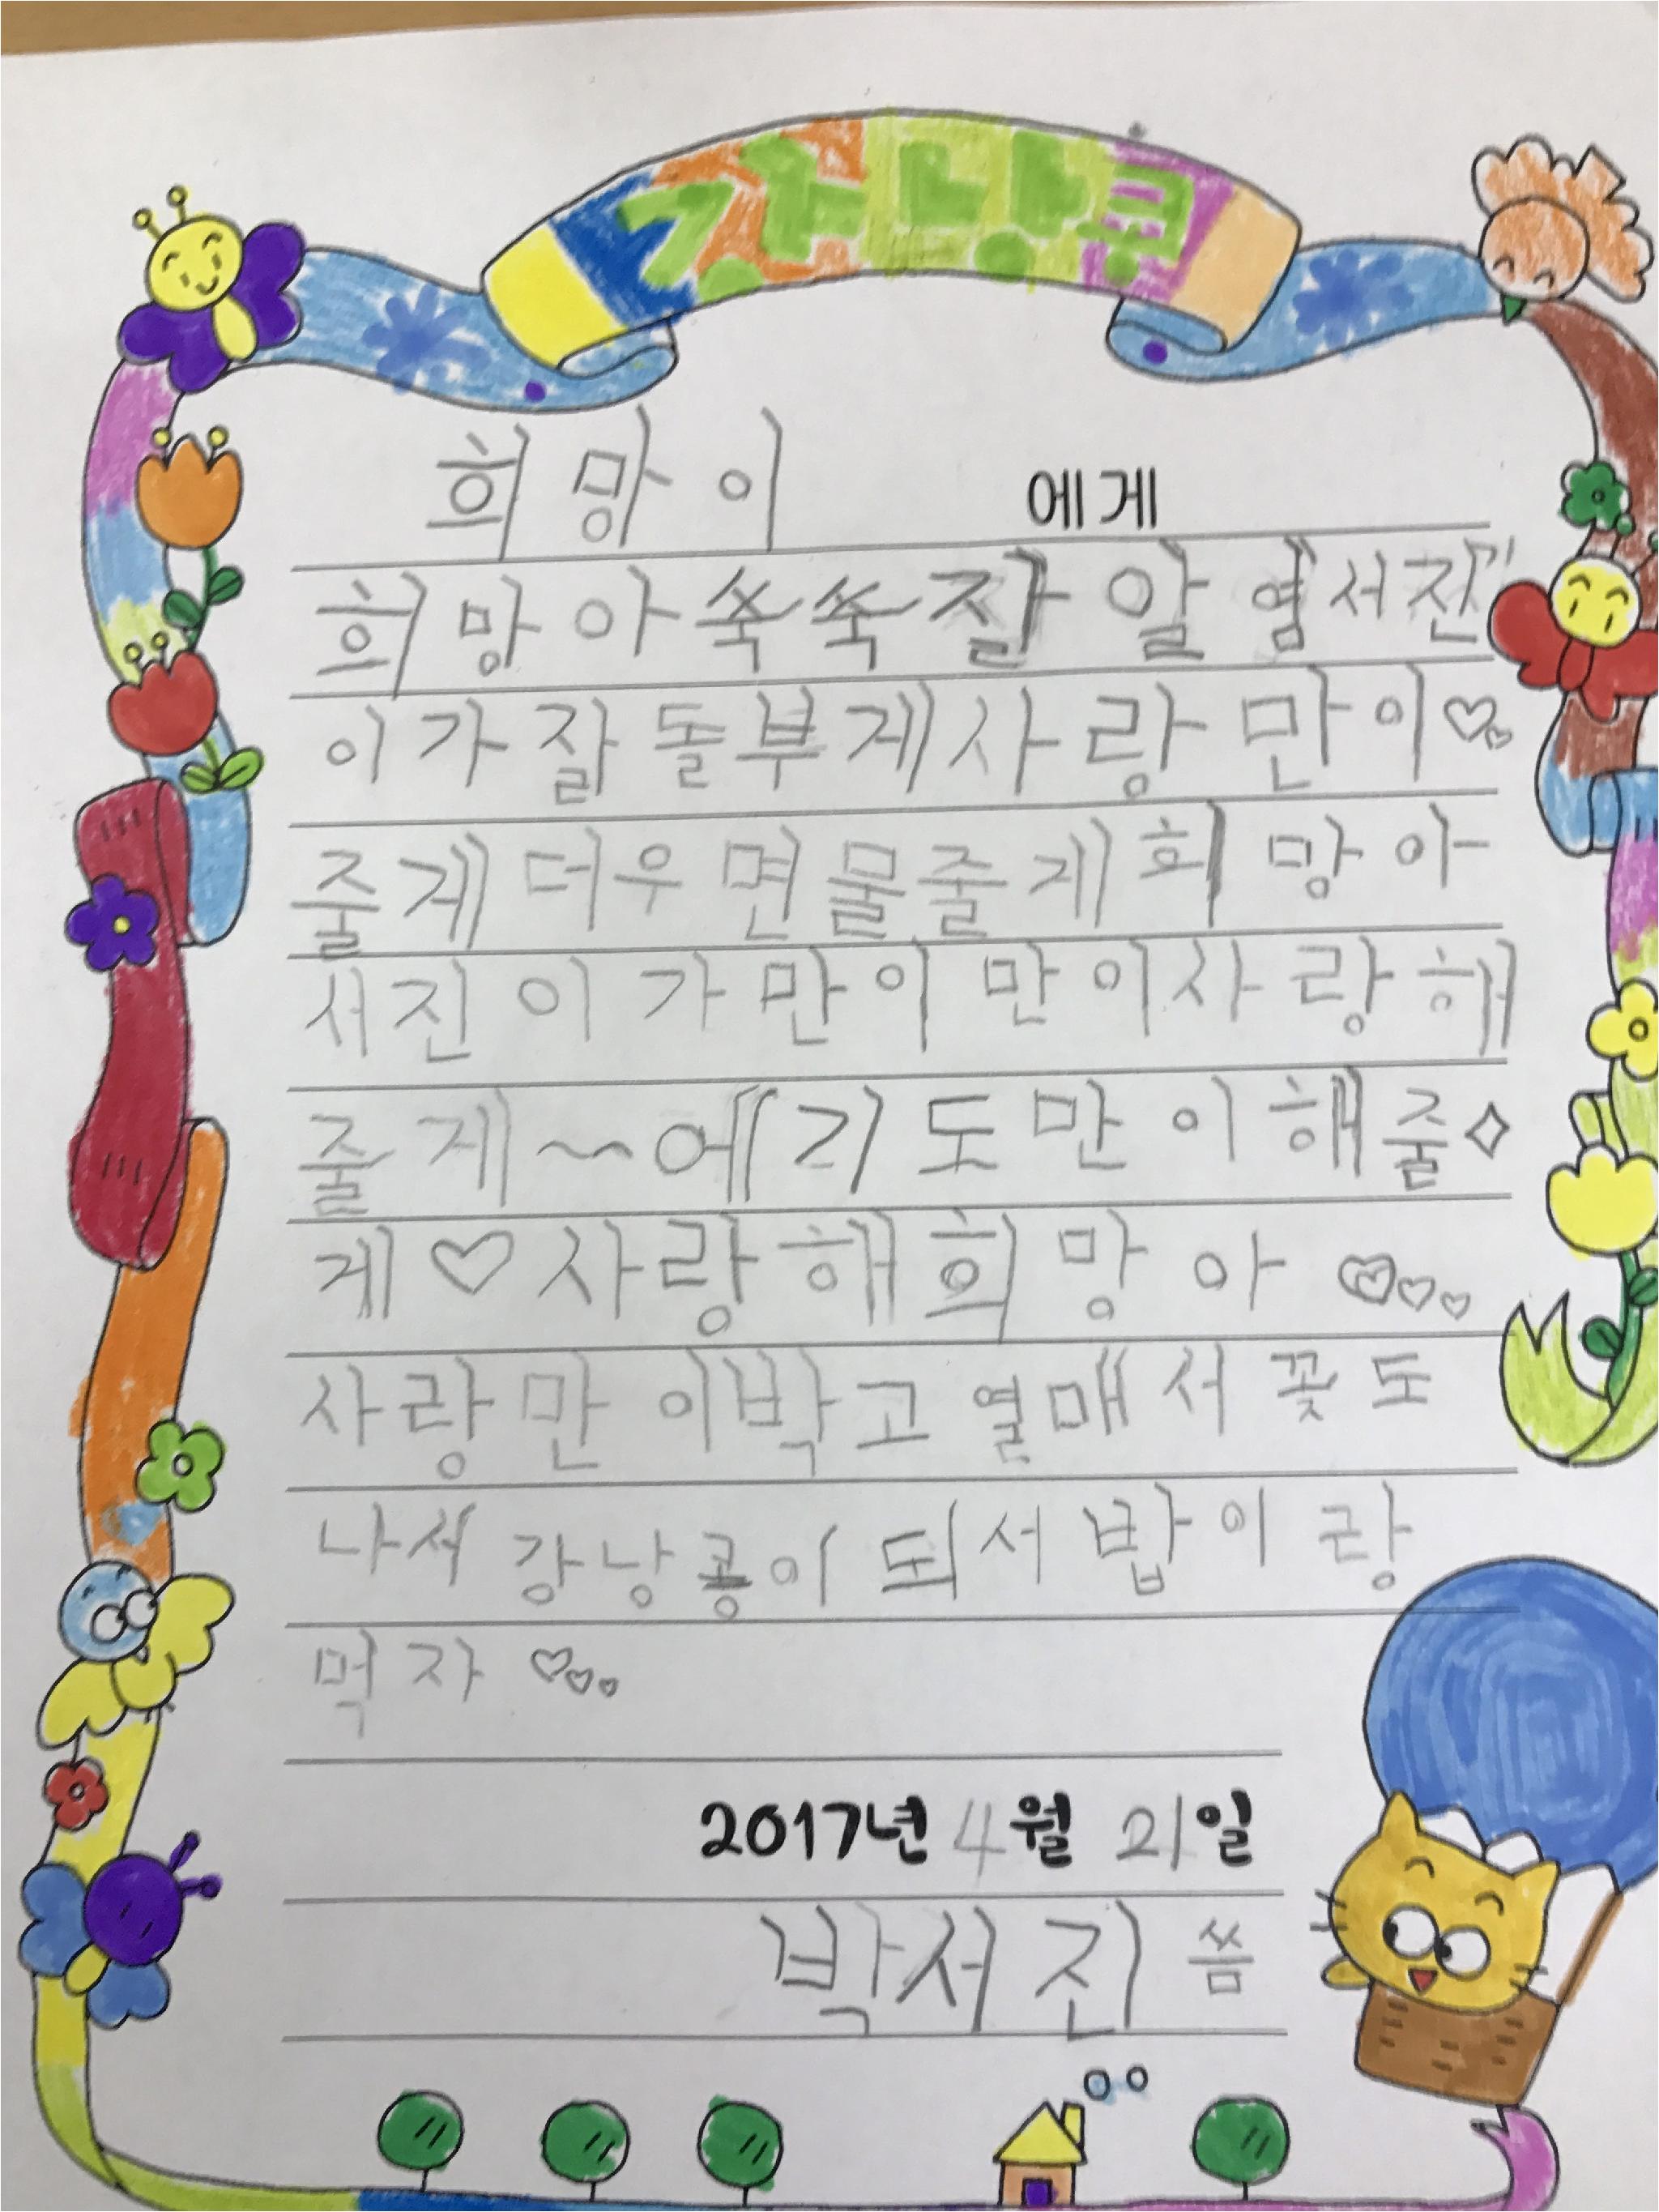 강낭콩
희망이 에게
희망아 쑥쑥 잘 알 서진
이가 잘 돌부게 사랑 만이♡♡
줄게 더우면 물줄게 희망아
서진이가 만이 만이 사랑해
줄게~에기도 만이 해줄◇
게♡사랑해 희망아 ♡♡♡
사랑 만이 박고 열매서 꽃도
나서 강낭콩이 되서 밥이랑
먹자 ♡♡♡
2017년 4월 21일
박서진 씀